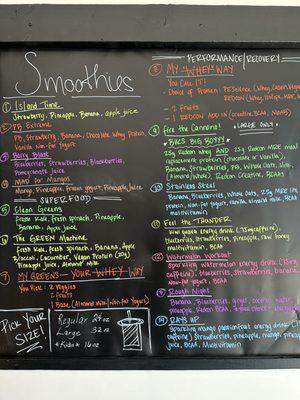 Smoothies
① Island Time
Strawberry, Pineapple, Banana, apple juice
② PB Extreme
PB, Strawberry, Banana, Chocolate Whey Protein
Vanilla Non-fat Yogurt
③ Berry Blast
Blueberries, Strawberries, Blackberries,
Pomegranate Juice
④ MAD for Mangos
Mango, Pineapple, frozen yogurt, Pineapple Juice
SUPERFOOD
⑤ Clean Greens
Fresh Kale, fresh Spinach, Pineapple,
Banana, Apple Juice
⑥ The GREEN Machine
Fresh Kale, fresh Spinach, Banana, Apple
Broccoli, Cucumber, Vegan Protein (20g)
Pineapple Juice
⑦ MY GREENS - YOUR WHEY WAY
You Pick: 2 Veggies
2 Fruits
Base (Almond Milk, Non-fat Yogurt)
PICK YOUR
SIZE!
Regular 24oz
Large 32oz
*Kids* 16oz
PERFORMANCE/RECOVERY
⑧ MY "WHEY" WAY
YOU CALL IT!
Choice of Protein:
- 2 Fruits
- 1 REDCON ADD IN (creatine, BCAA,
⑨ Fire the Cannons!
* BIGS BIG BOYYY * LARGE ONLY *
25g Redcon Whey AND 25g Redcon MRE meal
replacement protein (chocolate or vanilla),
Banana, Strawberries, PB, Whole Oats, Milk
(Almond/Whole), Redcon Creatine, BCAAs
⑩ Stainless Steel
Banana, Blueberry, Whole Oats, 25g MRE
protein, Non-fat yogurt, vanilla almond milk, BCAA,
multivitamin
⑪ Feel the THUNDER
Kiwi guava energy drink (75mg caffeine)
blueberries, strawberries, pineapple, raw honey
multivitamin, BCAA
⑫ Watermelon Workout
Sparkling watermelon energy drink (75mg
caffeine), blueberry, strawberries, banana
Non-fat yogurt, BCAA
⑬ Rough Night
Banana, Blueberries, ginger, coconut water
⑭ RAYS UP
Sparkling mango passionfruit energy drink
caffeine) strawberries, pineapple, mango, pineapple
juice, BCAA, Multivitamin